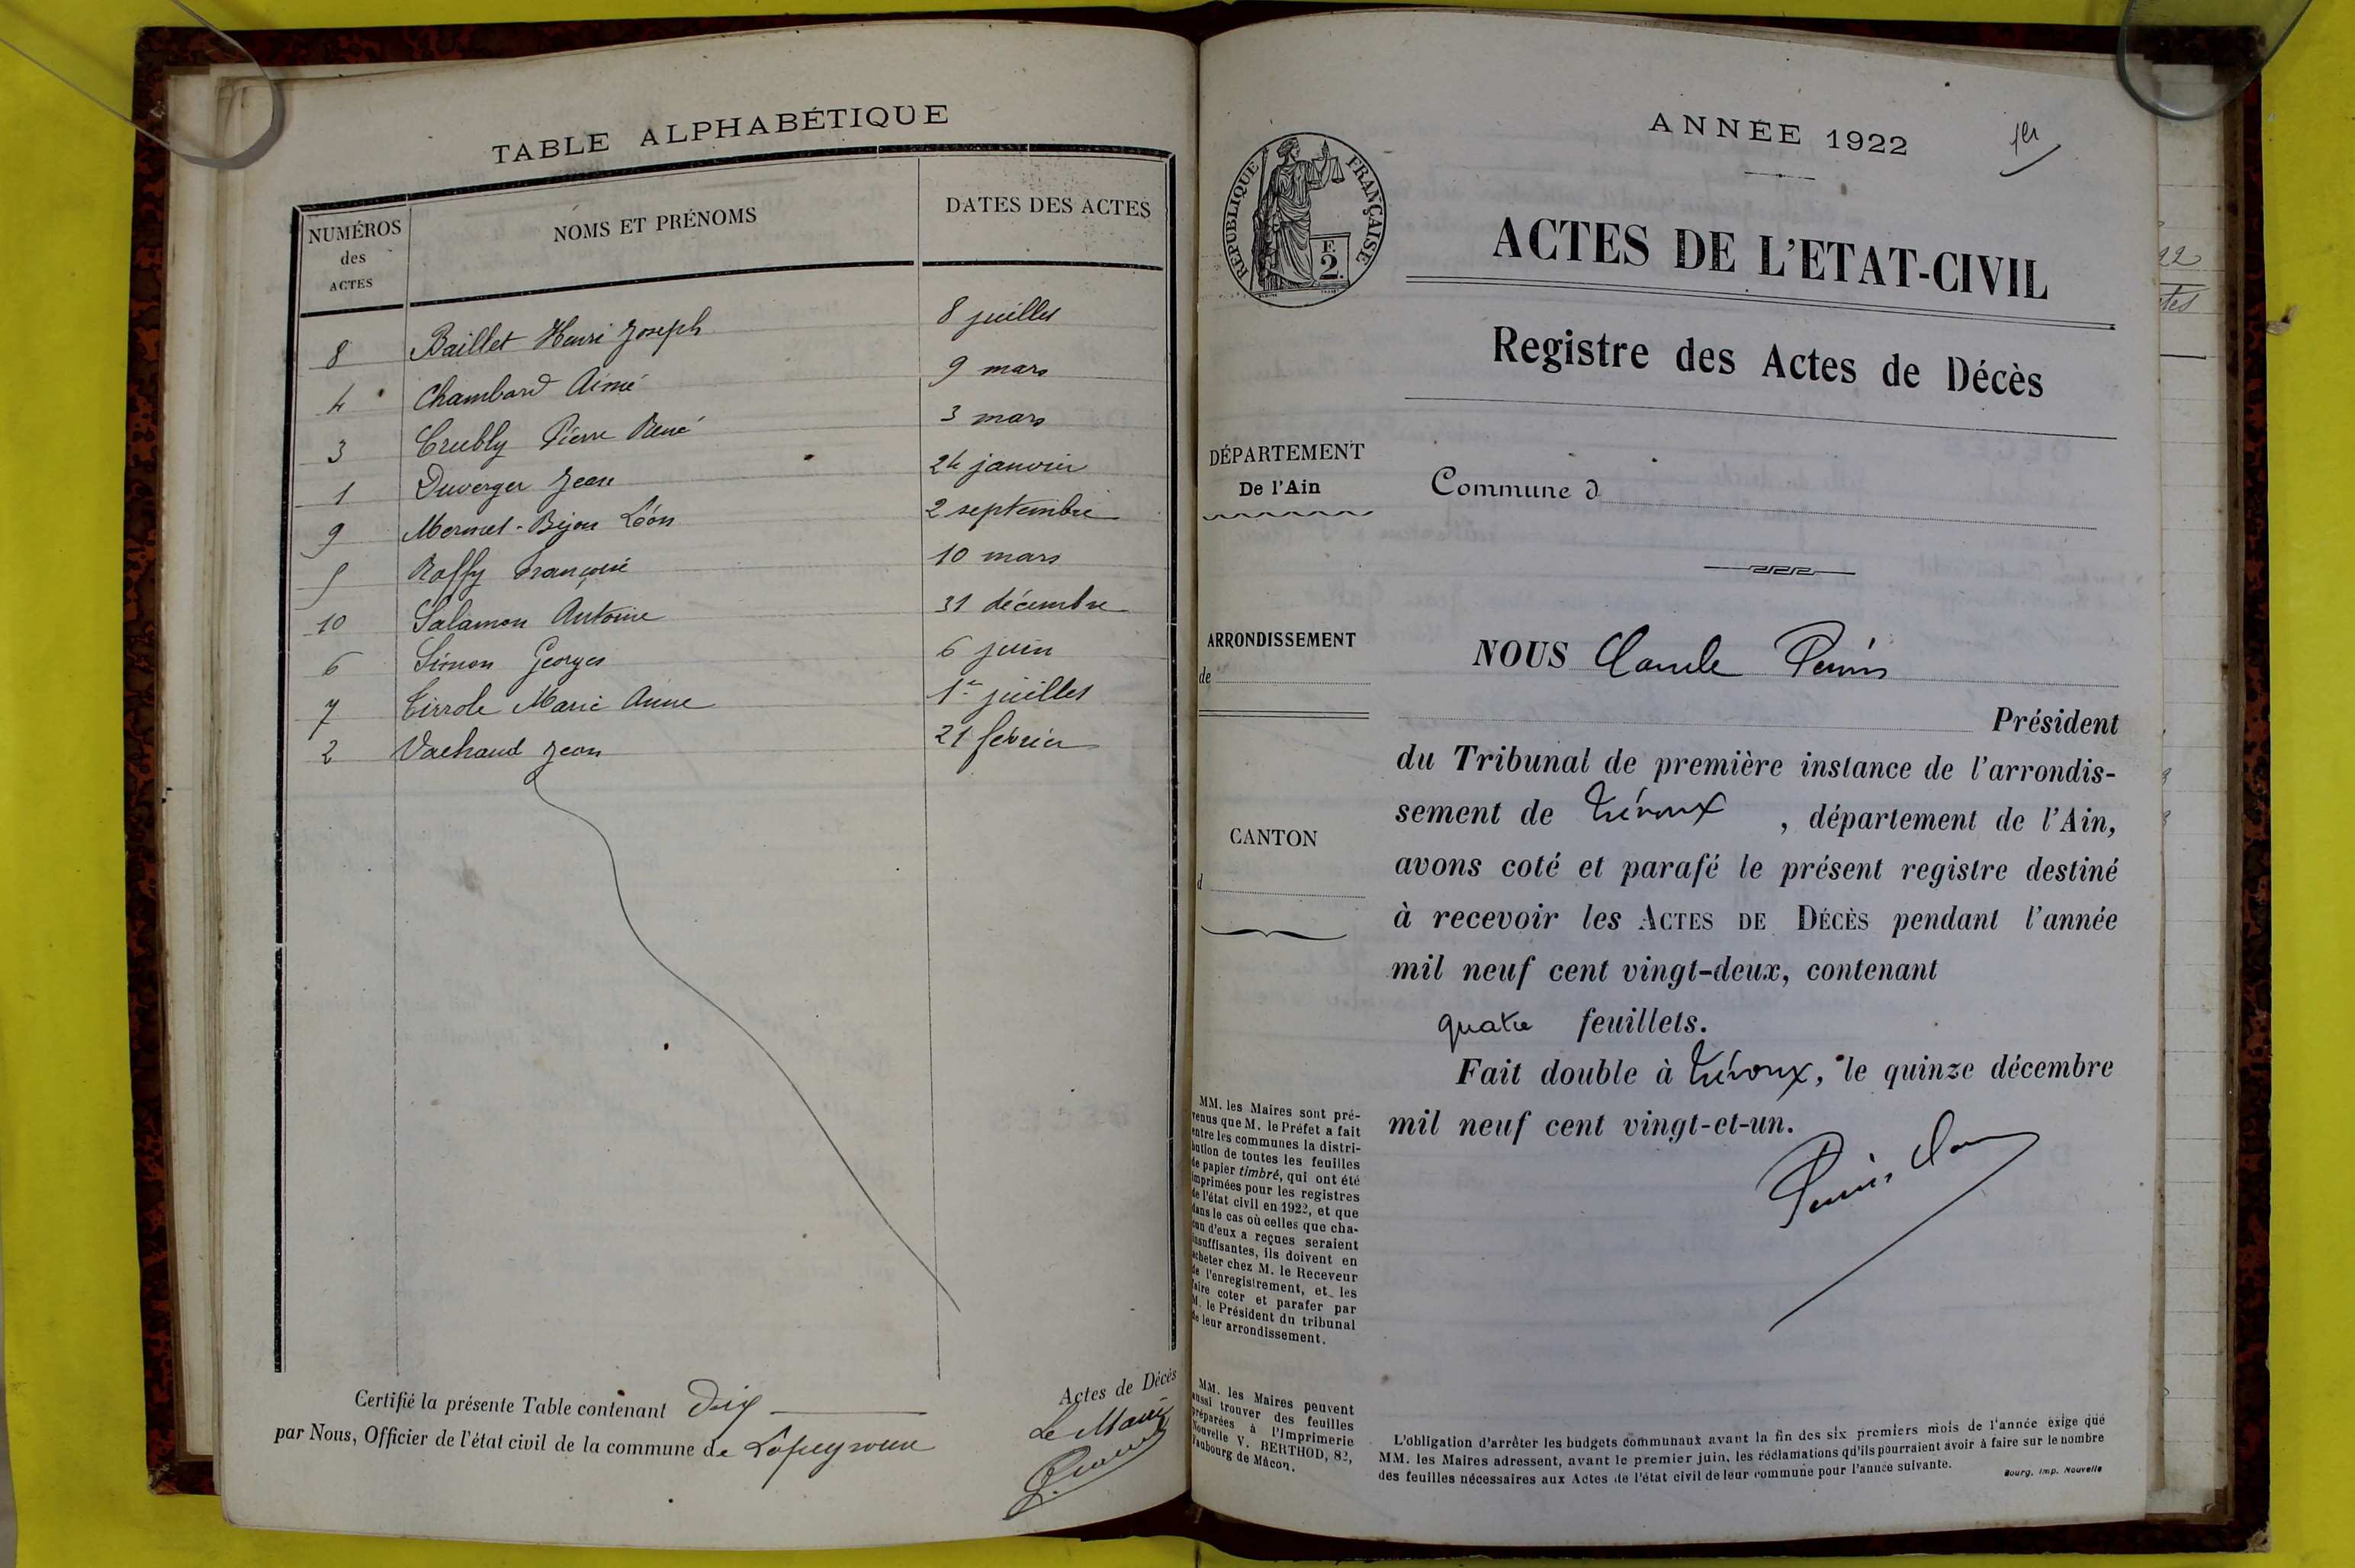 TABLE ALPHABÉTIQUE
NUMÉROS des ACTES
NOMS ET PRÉNOMS
DATES DES ACTES
8 Baillet Henri Joseph 8 juillet
4 Chambard Aimé 9 mars
3 Crubly Pierre René 3 mars
1 Duverger Jean 24 janvier
9 Mermet-Bijon Léon 2 septembre
5 Raffy Françoise 10 mars
10 Salamon Antoine 31 décembre
6 Simon Georges 6 juin
7 Tirrole Marie Anne 1er juillet
2 Vachaud Jean 21 février
Certifié la présente Table contenant dix Actes de Décès
par Nous, Officier de l'état civil de la commune de Lapeyrouse Le Maire
ANNÉE 1922
1er
RÉPUBLIQUE FRANÇAISE
F.
2.
ACTES DE L'ETAT-CIVIL
Registre des Actes de Décès
DÉPARTEMENT
De l'Ain
Commune d
ARRONDISSEMENT
de
CANTON
d
NOUS Claude Perris
Président
du Tribunal de première instance de l'arrondis-
sement de Trévoux, département de l'Ain,
avons coté et parafé le présent registre destiné
à recevoir les ACTES DE DÉCÈS pendant l'année
mil neuf cent vingt-deux, contenant
quatre feuillets.
Fait double à Trévoux, le quinze décembre
mil neuf cent vingt-et-un.
MM. les Maires sont pré-
venus que M. le Préfet a fait
entre les communes la distri-
bution de toutes les feuilles
de papier timbré, qui ont été
imprimées pour les registres
de l'état civil en 1922, et que
dans le cas où celles que cha-
cun d'eux a reçues seraient
insuffisantes, ils doivent en
acheter chez M. le Receveur
de l'enregistrement, et les
faire coter et parafer par
M. le Président du tribunal
de leur arrondissement.
MM. les Maires peuvent
aussi trouver des feuilles
préparées à l'Imprimerie
Nouvelle V. BERTHOD, 82,
Faubourg de Mâcon.
L'obligation d'arrêter les budgets communaux avant la fin des six premiers mois de l'année exige que
MM. les Maires adressent, avant le premier juin, les réclamations qu'ils pourraient avoir à faire sur le nombre
des feuilles nécessaires aux Actes de l'état civil de leur commune pour l'année suivante.
Bourg, Imp. Nouvelle